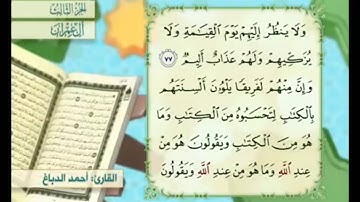 الجزء الثالث
آل عمران
وَلَا يَنظُرُ إِلَيْهِمْ يَوْمَ ٱلْقِيَٰمَةِ وَلَا
يُزَكِّيهِمْ وَلَهُمْ عَذَابٌ أَلِيمٌ ٧٧
وَإِنَّ مِنْهُمْ لَفَرِيقًا يَلْوُۥنَ أَلْسِنَتَهُم
بِٱلْكِتَٰبِ لِتَحْسَبُوهُ مِنَ ٱلْكِتَٰبِ وَمَا
هُوَ مِنَ ٱلْكِتَٰبِ وَيَقُولُونَ هُوَ مِنْ
عِندِ ٱللَّهِ وَمَا هُوَ مِنْ عِندِ ٱللَّهِ وَيَقُولُونَ
القارئ: أحمد الدباغ